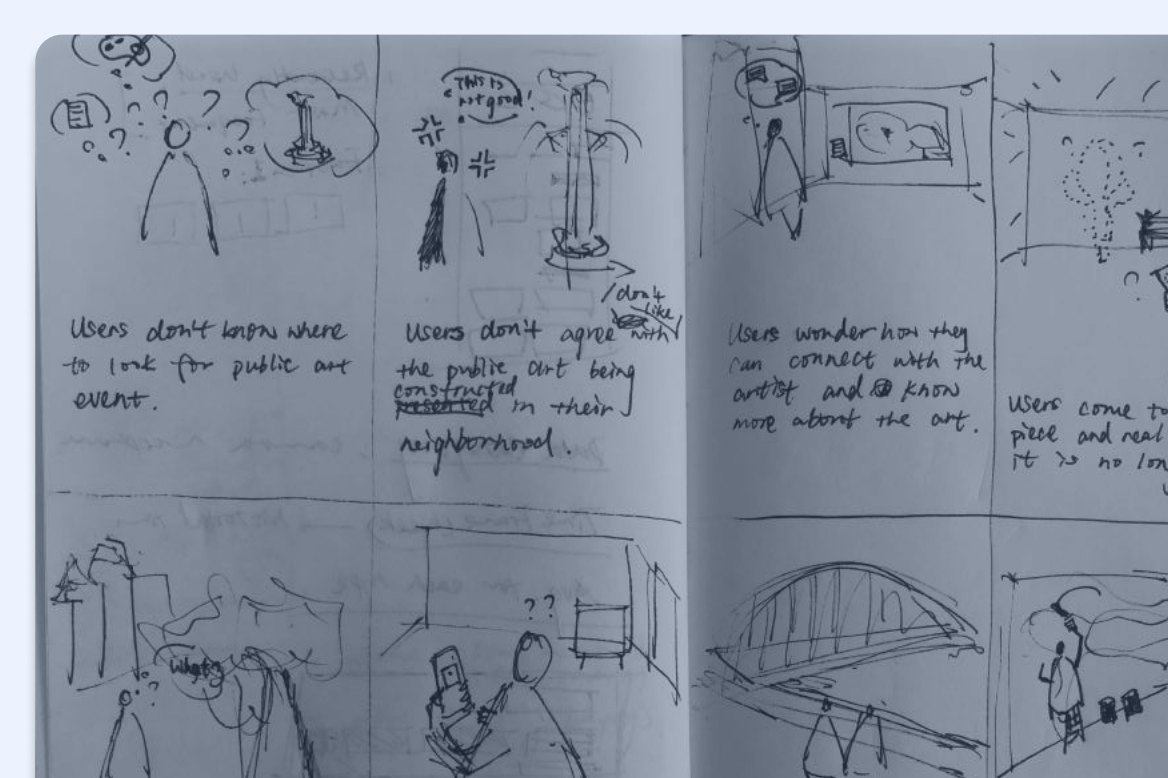 THIS IS
not good!
Users don't know where
to look for public art
event.
don't
like
Users don't agree with
the public art being
constructed
presented in their
neighborhood.
Users wonder how they
can connect with the
artist and know
more about the art.
Users come to
piece and real
it is no lon
What?
??